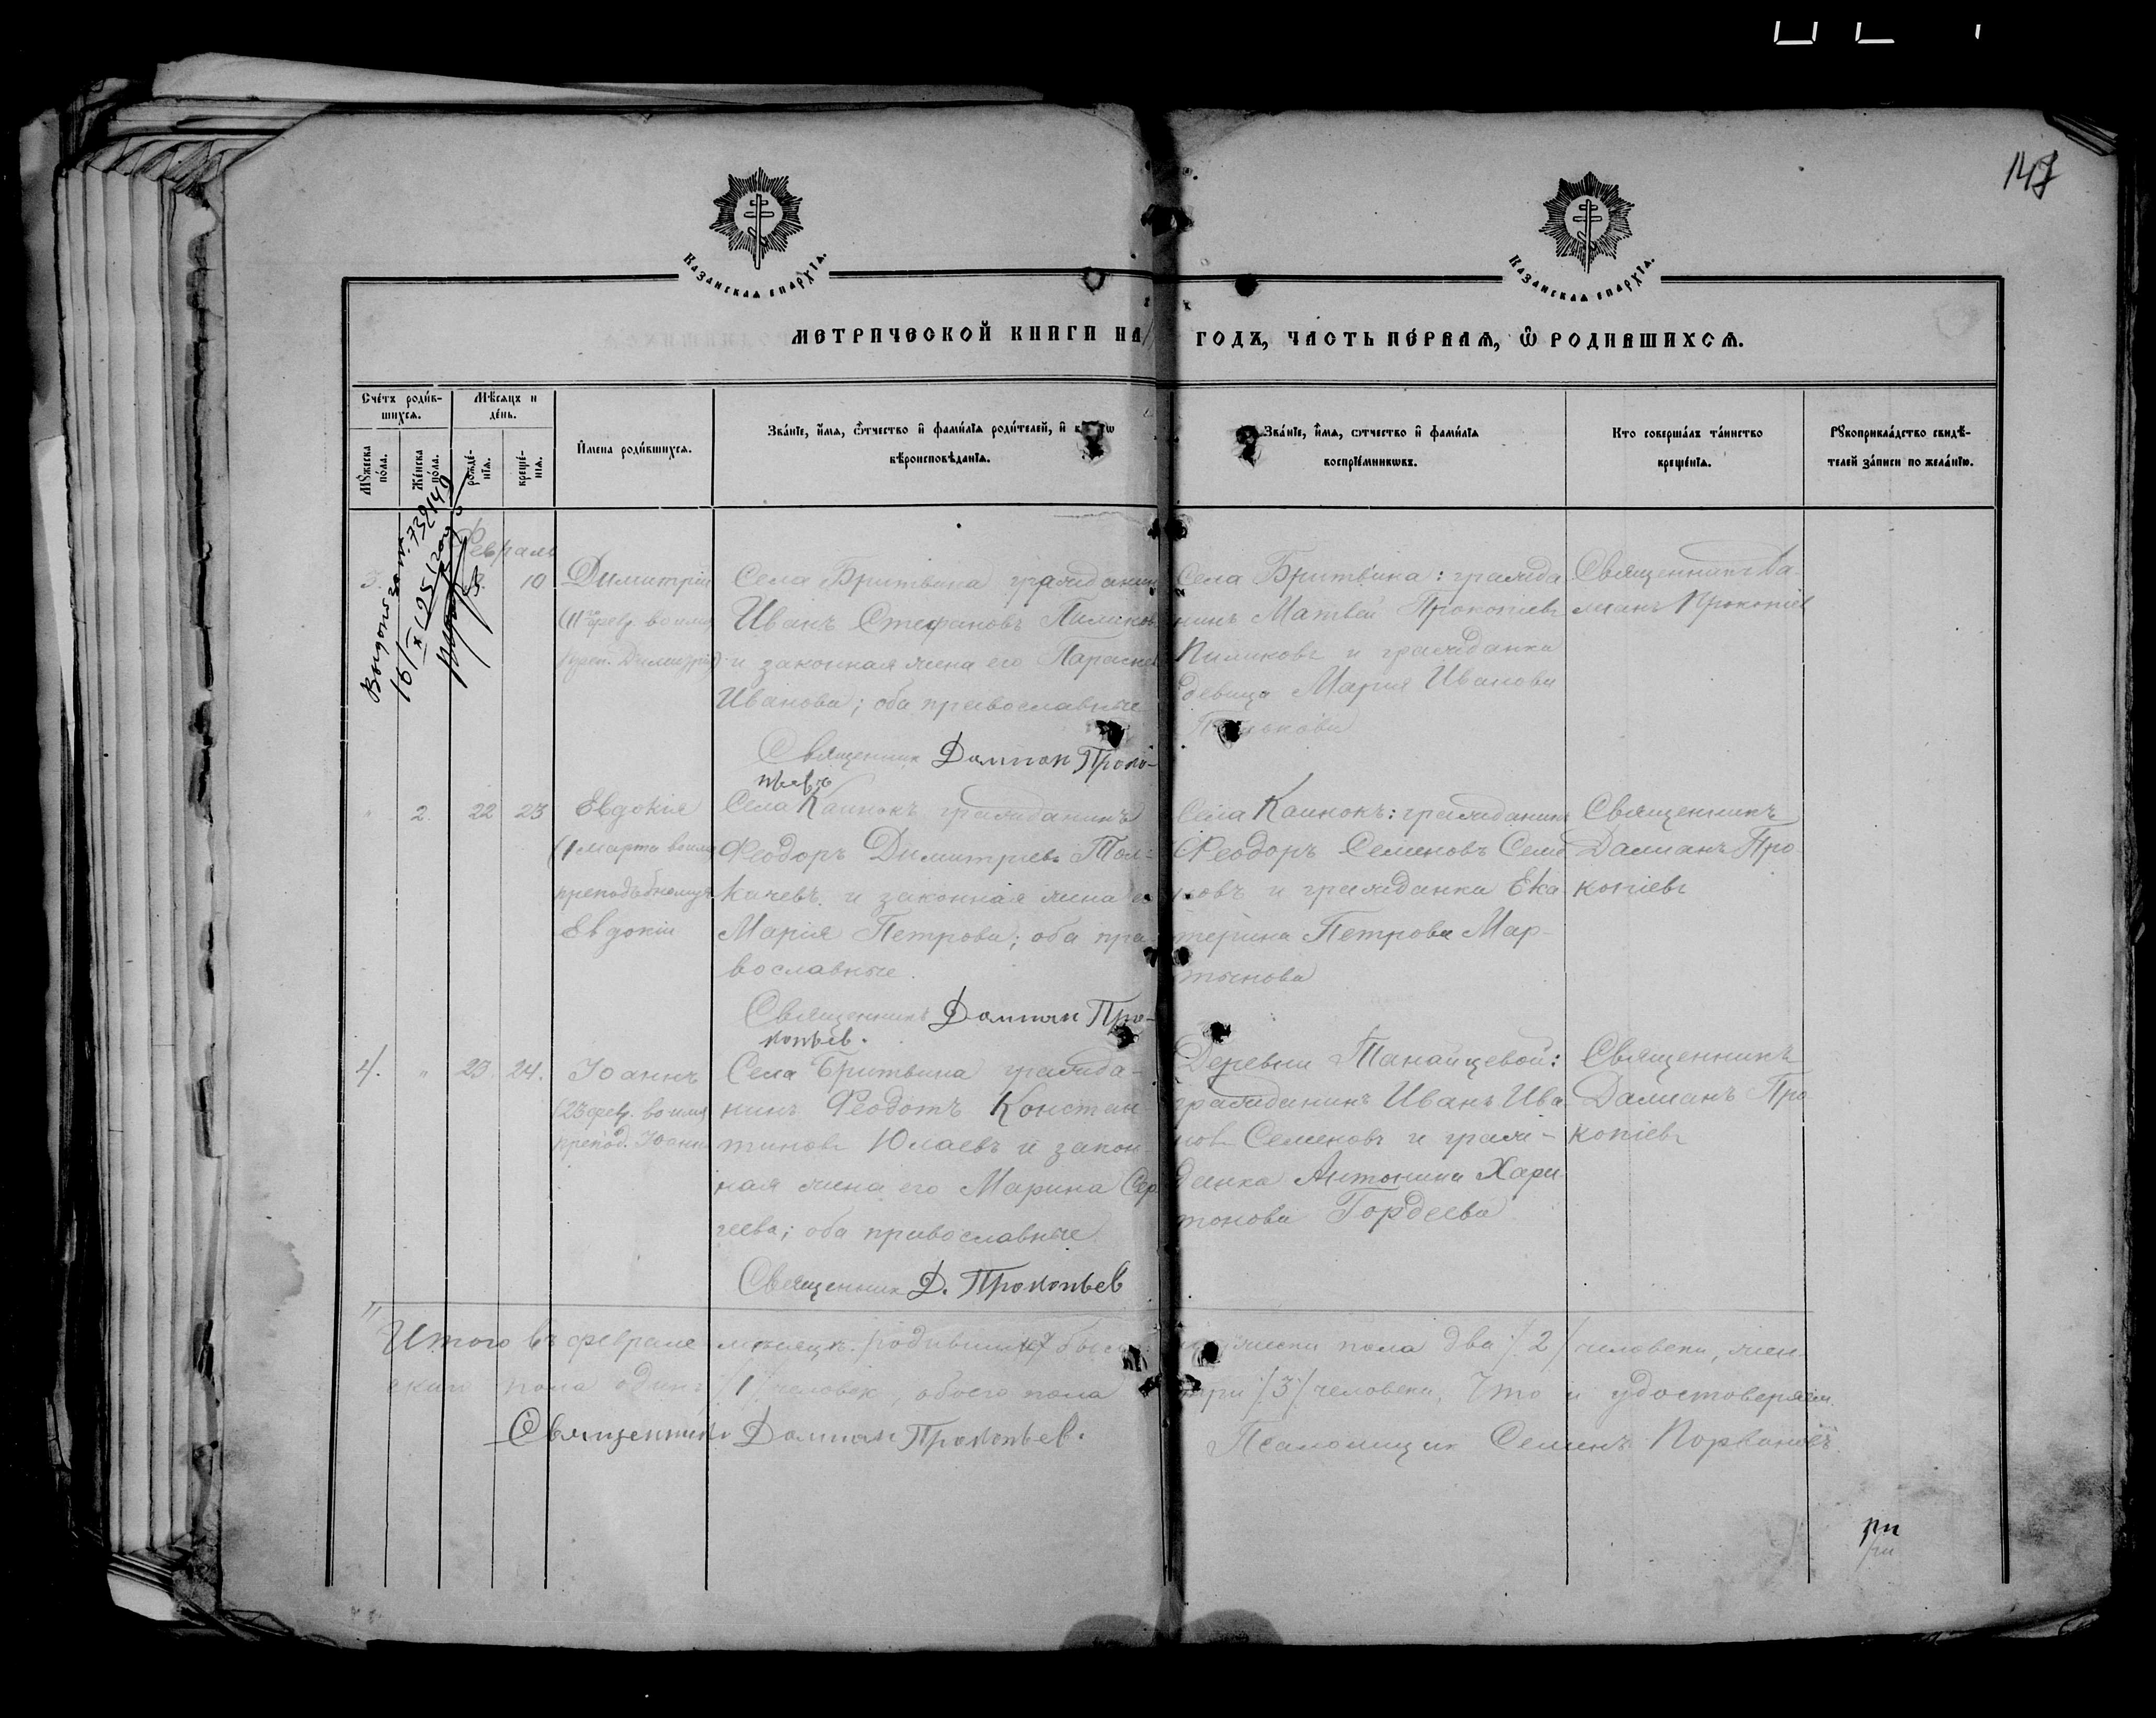 147
Казанская епархїа.
Казанская епархїа.
МЕТРИЧЕСКОЙ КНИГИ НА ГОДЪ, ЧАСТЬ ПЕ́РВАЯ, Ѽ РОДИВШИХСЯ.
Сче́тъ роди́вшихся.
Мѣ́сяцъ и де́нь.
Мꙋ́жеска по́ла.
Же́нска по́ла.
рожде́нїя.
креще́нїя.
И́мена роди́вшихся.
Зва́нїе, и́мя, ѻ́тчество и фами́лїя роди́телей, и
вѣроисповѣ́данїя.
Зва́нїе, и́мя, ѻ́тчество и фами́лїя
воспрїе́мникѡвъ.
Кто соверша́лъ та́инство
креще́нїя.
Рꙋкоприкла́дство свидѣ́-
телей за́писи по жела́нїю.
Февраль
3. 10
Димитрій
(11 февр. во имя
преп. Димитрія)
Села Бритвина гражданин
Иванъ Стефановъ Пиликов
и законная жена его Параскев
Иванова; оба православные
Священник Дамиан Проко-
пьевъ
Села Бритвина: гражда
нинъ Матвей Прокопіевъ
Пиликовъ и гражданка
девица Марія Иванова
Священникъ Да
міанъ Прокопіев
" 2. 22 23
Евдокія
(1 марта во имя
преподобномуч
Евдокіи
Села Каинокъ гражданинъ
Феодоръ Димитріевъ Тол-
качевъ и законная жена е
Марія Петрова; оба пра-
вославные.
Священникъ Дамиан Про-
копьев.
Села Каинокъ: гражданин
Феодоръ Семеновъ Семе
новъ и гражданка Ека
терина Петрова Мар-
тынова
Священникъ
Даміанъ Про
копіевъ
4. " 23. 24.
Іоаннъ
(23 февр. во имя
препод. Іоанн
Села Бритвина гражда-
нинъ Феодотъ Констан
тиновъ Юлаевъ и закон
ная жена его Марина Сер
геева; оба православные
Священник Д. Прокопьев
Деревни Танайцевой:
гражданинъ Иванъ Ива
новъ Семеновъ и граж-
данка Антонина Хари
тонова Гордеева
Священникъ
Даміанъ Про
копіевъ
Итого въ феврале месяце родившихся было мужеска пола два /2/ человека, жен-
скаго пола одинъ /1/ человек, обоего пола три /3/ человека, Что и удостоверяем.
Священникъ Дамиан Прокопьев.
Псаломщик